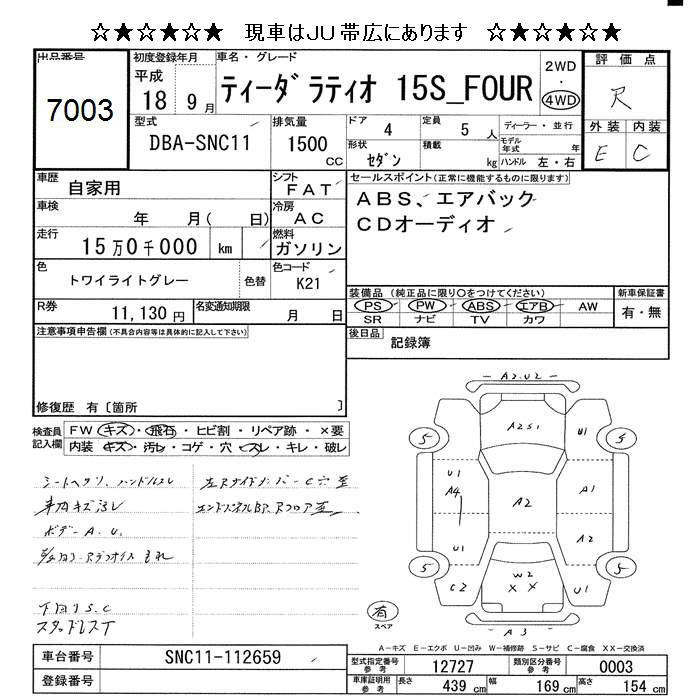 ☆★☆★☆★☆ 現車はJU帯広にあります ☆★☆★☆★☆
出品番号
7003
初度登録年月
平成
18 9月
車名・グレード
ティーダラティオ 15S_FOUR
2WD
・
4WD
評価点
R
外装 内装
E C
型式
DBA-SNC11
排気量
1500
cc
ドア
4
定員
5 人
形状
セダン
積載
kg
ディーラー・並行
モデル年式 年
ハンドル 左・右
車歴
自家用
シフト
FAT
車検
年 月( 日)
冷房
AC
走行
15万0千000 km
燃料
ガソリン
色
トワイライトグレー
色替
色コード
K21
R券
11,130円
名変通知期限
月 日
セールスポイント(正常に機能するものに限ります)
ABS、エアバック
CDオーディオ
装備品(純正品に限り○をつけてください)
PS PW ABS エアB AW
SR ナビ TV カワ
新車保証書
有・無
後日品
記録簿
注意事項申告欄(不具合内容等は具体的に記入して下さい)
修復歴 有〔箇所 〕
検査員記入欄
FW キズ・飛石・ヒビ割・リペア跡・×要
内装 キズ・汚レ・コゲ・穴・スレ・キレ・破レ
シートヘタリ、ハンドルスレ
車内キズ汚レ
ボデーA.U.
下回りS.C
スタッドレスT
A2.U2
A2S1
U1
5
5
U1
A4
A2
A1
U1
A2
5
5
C2
W2
X X
U1
A3
有
スペア
A-キズ E-エクボ U-凹み W-補修跡 S-サビ C-腐食 XX-交換済
車台番号
SNC11-112659
登録番号
型式指定番号
参考
12727
類別区分番号
参考
0003
車庫証明用
参考
長さ
439 cm
幅
169 cm
高さ
154 cm